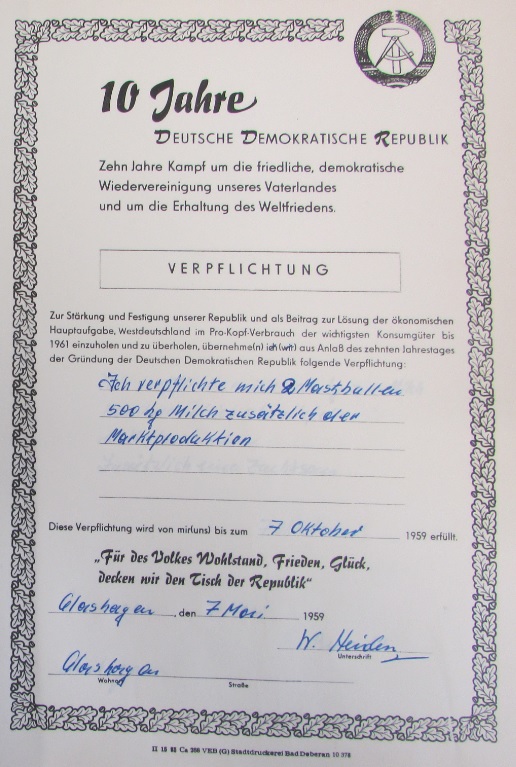 10 Jahre
DEUTSCHE DEMOKRATISCHE REPUBLIK
Zehn Jahre Kampf um die friedliche, demokratische
Wiedervereinigung unseres Vaterlandes
und um die Erhaltung des Weltfriedens.
VERPFLICHTUNG
Zur Stärkung und Festigung unserer Republik und als Beitrag zur Lösung der ökonomischen
Hauptaufgabe, Westdeutschland im Pro-Kopf-Verbrauch der wichtigsten Konsumgüter bis
1961 einzuholen und zu überholen, übernehme(n) ich (wir) aus Anlaß des zehnten Jahrestages
der Gründung der Deutschen Demokratischen Republik folgende Verpflichtung:
Ich verpflichte mich 2 Mastbullen
500 kg Milch zusätzlich der
Marktproduktion
Diese Verpflichtung wird von mir(uns) bis zum 7 Oktober 1959 erfüllt.
„Für des Volkes Wohlstand, Frieden, Glück,
decken wir den Tisch der Republik“
Glashagen, den 7 Mai 1959
W.
Unterschrift
Glashagen
Wohnort Straße
VEB (G) Stadtdruckerei Bad Doberan